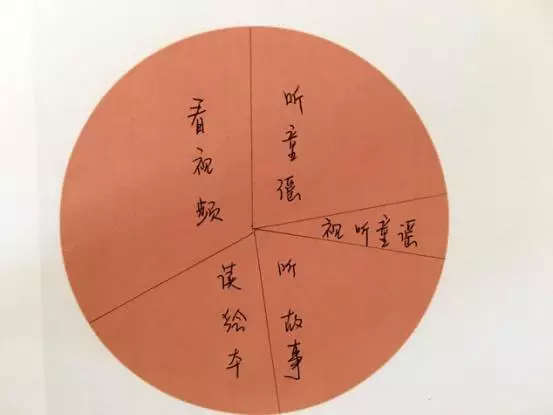 看视频
听童谣
视听童谣
听故事
读绘本